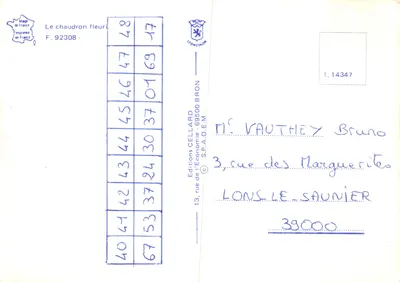 image de France
imprimée en France
Le chaudron fleuri
F. 92308
48 17
47 69
46 01
45 37
44 30
43 24
42 37
41 53
40 67
Editions CELLARD
13, rue de l'Economie - 69500 BRON
© S.P.A.D.E.M
I. 14347
Mr VAUTHEY Bruno
3, rue des Marguerites
LONS-LE-SAUNIER
39000